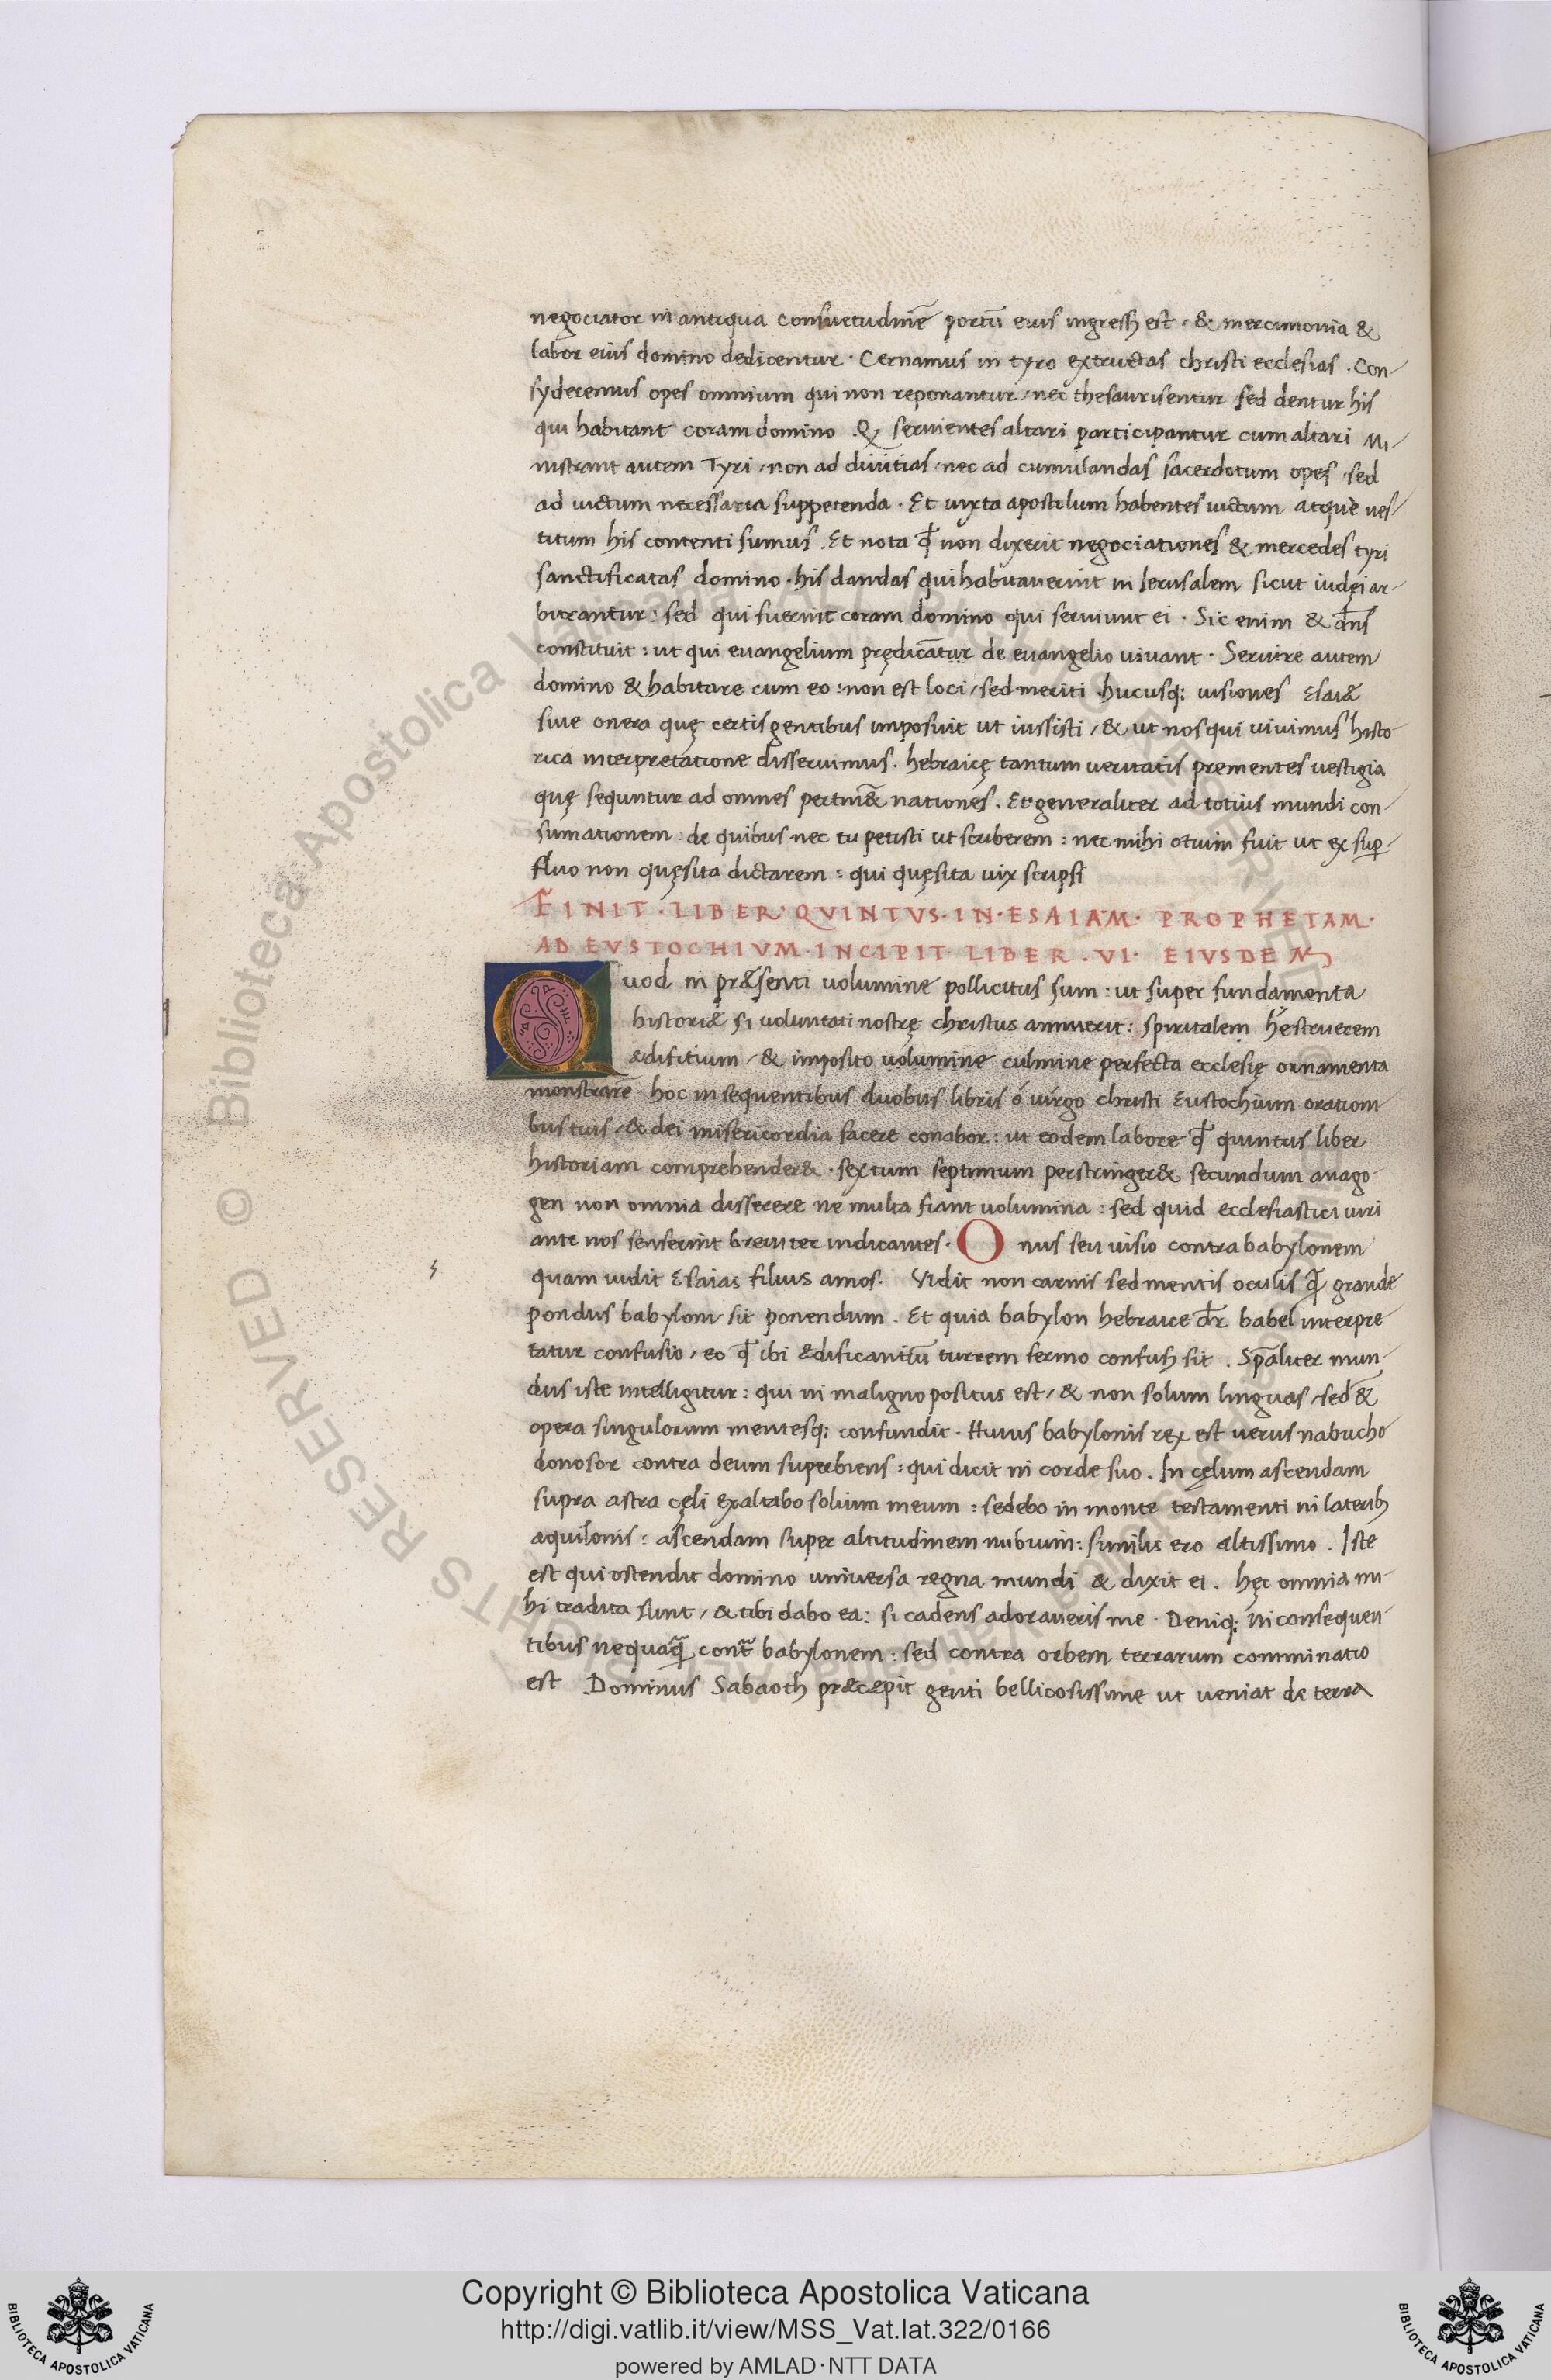 negociator in antiqua consuetudinē portū eius ingressꝰ est / & mercimonia &
labor eius domino dedicentur · Cernamus in tyro extructas christi ecclesias · Con-
syderemus opes omnium qui non reponantur / nec thesaurisentur sed dentur his
qui habitant coram domino . Q seruientes altari participantur cum altari Mi-
nistrant autem Tyri / non ad diuitias / nec ad cumulandas sacerdotum opes / sed
ad uictum necessaria suppetenda · Et iuxta apostilum habentes uictum atque ues-
titum his contenti sumus . Et nota qđ non dixerit negociationes & mercedes tyri
sanctificatas domino · his dandas qui habitauerint in Ierusalem sicut iudęi ar-
bitrantur : sed qui fuerint coram domino qui seruiunt ei · Sic enim & dn̄s
constituit : ut qui euangelium prędicātur de euangelio uiuant · Seruire autem
domino & habitare cum eo : non est loci / sed meriti hucusq; uisiones Esaiæ
siue onera quę certis gentibus imposuit ut iussisti / & ut nos qui uiuimus histo
rica interpretatione disseruimus . hebraicę tantum ueritatis prementes uestigia
quę sequntur ad omnes pertin& nationes . Et generaliter ad totius mundi con-
sumationem : de quibus nec tu petisti ut scriberem : nec mihi otium fuit ut ex sup̄-
fluo non quęsita dictarem : qui quęsita uix scripsi
FINIT · LIBER · QVINTVS · IN · ESAIAM · PROPHETAM ·
AD EVSTOCHIVM · INCIPIT LIBER . VI · EIVSDEM
Quod in præsenti uolumine pollicitus sum : ut super fundamenta
historiæ si uoluntati nostrę christus annuerit : spiritalem hestruerem
ædifitium / & imposito uolumine culmine perfecta ecclesię ornamenta
monstrare hoc in sequentibus duobus libris ó uirgo christi Eustochium oration
bus tuis / & dei misericordia facere conabor : ut eodem labore qđ quintus liber
historiam comprehender& · sextum septimum perstringer& secundum anago-
gen non omnia disserere ne multa fiant uolumina : sed quid ecclesiastici uiri
ante nos senserint breuiter indicantes · Onus seu uisio contra babylonem
quam uidit Esaias filius amos . Vidit non carnis sed mentis oculis q̄ grande
pondus babyloni sit ponendum . Et quia babylon hebraice dr̄ babel interpre
tatur confusio / eo qđ ibi ædificantiū turrem sermo confusꝰ sit . Sp̄aliter mun-
dus iste intelligitur : qui in maligno positus est / & non solum linguas / sed &
opera singulorum mentesq; confundit · Huius babylonis rex est uerus nabucho
donosor contra deum superbiens : qui dicit in corde suo . In cęlum ascendam
supra astra cęli exaltabo solium meum : sedebo in monte testamenti in lateribꝰ
aquilonis : ascendam super altitudinem nubium : similis ero altissimo . Iste
est qui ostendit domino uniuersa regna mundi & dixit ei . hęc omnia mi-
hi tradita sunt / & tibi dabo ea : si cadens adoraueris me · Deniq; in consequen
tibus nequaq̄ cont̄ babylonem : sed contra orbem terrarum comminatio
est . Dominus Sabaoth præcepit genti bellicosissime ut ueniat de terra
Copyright © Biblioteca Apostolica Vaticana
http://digi.vatlib.it/view/MSS_Vat.lat.322/0166
powered by AMLAD·NTT DATA
BIBLIOTECA APOSTOLICA VATICANA
BIBLIOTECA APOSTOLICA VATICANA